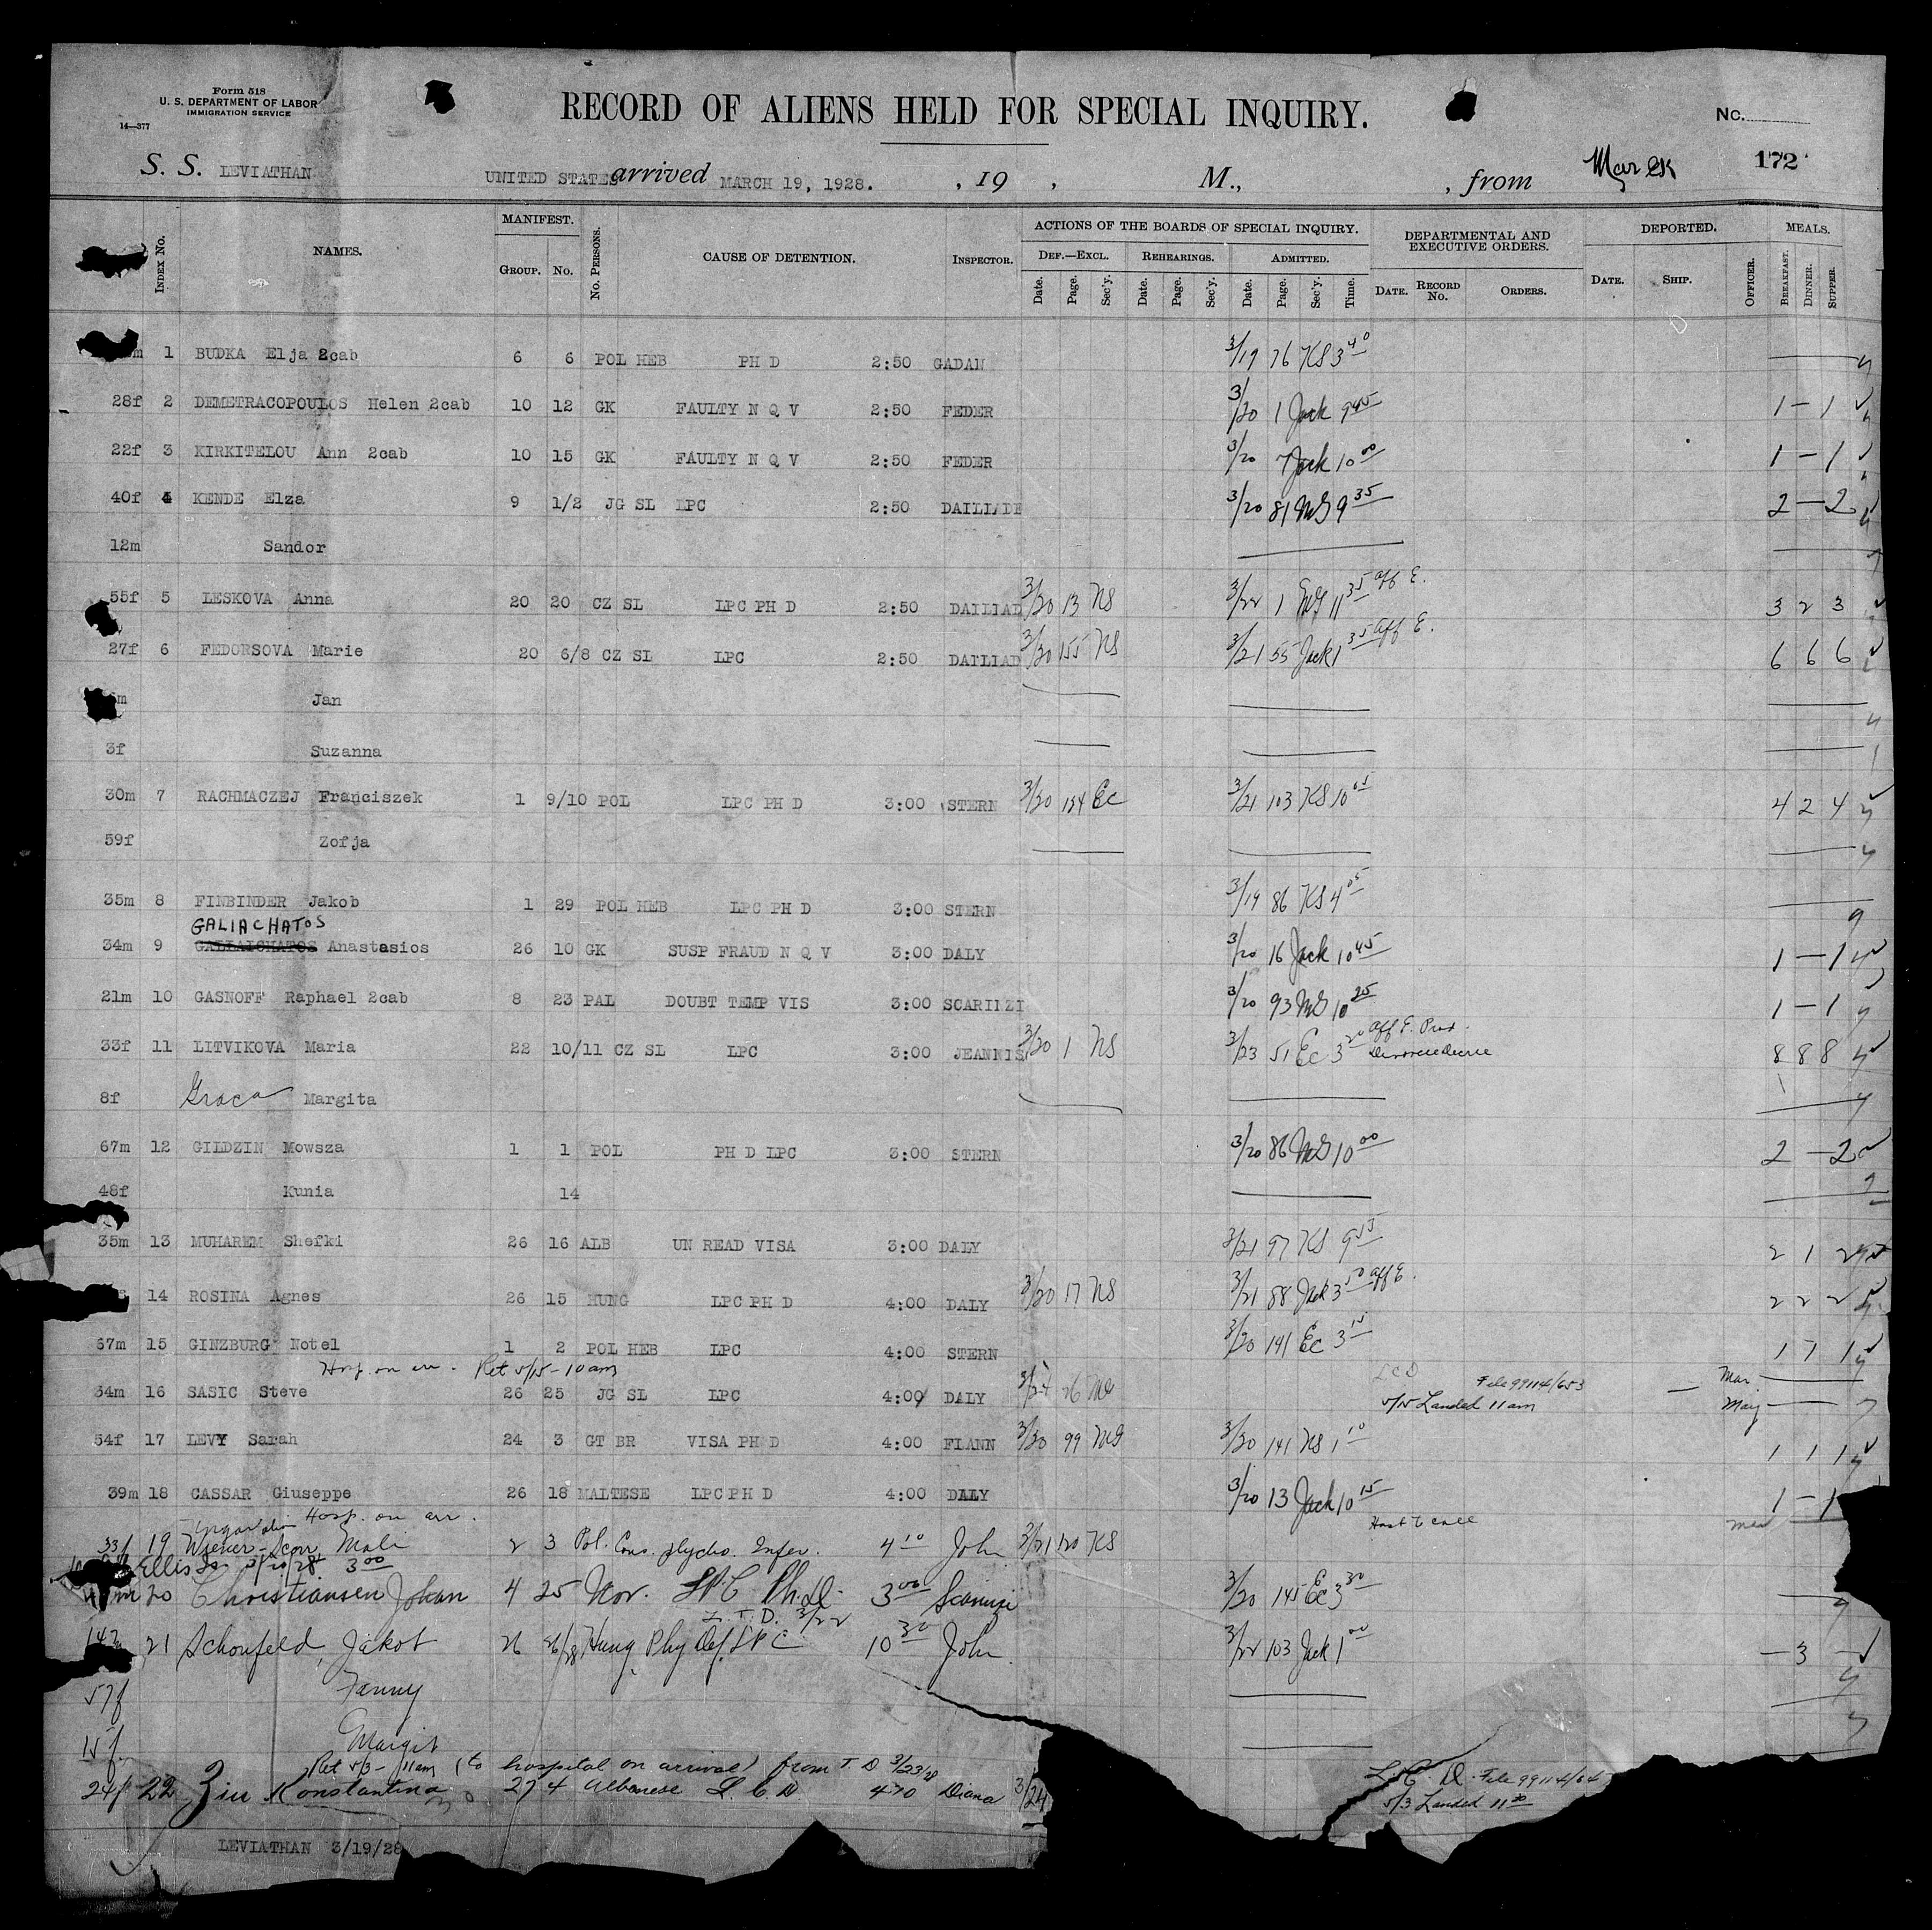 Form 518
U. S. DEPARTMENT OF LABOR
IMMIGRATION SERVICE
14—377
RECORD OF ALIENS HELD FOR SPECIAL INQUIRY.
No.
172
S. S. LEVIATHAN UNITED STATES arrived MARCH 19, 1928. , 19 , M., , from
INDEX NO. NAMES. MANIFEST. GROUP. NO. NO. PERSONS. CAUSE OF DETENTION. INSPECTOR. ACTIONS OF THE BOARDS OF SPECIAL INQUIRY. DEF.—EXCL. Date. Page. Sec'y. REHEARINGS. Date. Page. Sec'y. ADMITTED. Date. Page. Sec'y. Time. DEPARTMENTAL AND EXECUTIVE ORDERS. DATE. RECORD NO. ORDERS. DEPORTED. DATE. SHIP. OFFICER. MEALS. BREAKFAST. DINNER. SUPPER.
m 1 BUDKA Elja 2cab 6 6 POL HEB PH D 2:50 GADAN 3/19 76 KS 3 40
28f 2 DEMETRACOPOULOS Helen 2cab 10 12 GK FAULTY N Q V 2:50 FEDER 3/20 1 Jack 9 45 1 — 1
22f 3 KIRKITELOU Ann 2cab 10 15 GK FAULTY N Q V 2:50 FEDER 3/20 7 Jack 10 00 1 — 1
40f 4 KENDE Elza 9 1/2 JG SL LPC 2:50 DAILIADE 3/20 81 MG 9 35 2 — 2
12m Sandor
55f 5 LESKOVA Anna 20 20 CZ SL LPC PH D 2:50 DAILIAD 3/20 13 NS 3/22 1 MG 11 35 aff E. 3 2 3
27f 6 FEDORSOVA Marie 20 6/8 CZ SL LPC 2:50 DAILIAD 3/20 155 NS 3/21 55 Jack 1 35 aff E. 6 6 6
m Jan
3f Suzanna
30m 7 RACHMACZEJ Franciszek 1 9/10 POL LPC PH D 3:00 STERN 3/20 154 Ec 3/21 103 KS 10 05 4 2 4
59f Zofja
35m 8 FINBINDER Jakob 1 29 POL HEB LPC PH D 3:00 STERN 3/19 86 KS 4 05
GALIACHATOS
34m 9 GALIAICHATOS Anastasios 26 10 GK SUSP FRAUD N Q V 3:00 DALY 3/20 16 Jack 10 45 1 — 1
21m 10 GASNOFF Raphael 2cab 8 23 PAL DOUBT TEMP VIS 3:00 SCARILZI 3/20 93 MG 10 25 1 — 1
33f 11 LITVIKOVA Maria 22 10/11 CZ SL LPC 3:00 JEANNIS 3/20 1 NS 3/23 51 Ec 3 20 aff E. Prod. Divorce decree 8 8 8
8f Graca Margita
67m 12 GILDZIN Mowsza 1 1 POL PH D LPC 3:00 STERN 3/20 86 MG 10 00 2 — 2
48f Kunia 14
35m 13 MUHAREM Shefki 26 16 ALB UN READ VISA 3:00 DALY 3/21 97 KS 9 55 2 1 2
14 ROSINA Agnes 26 15 HUNG LPC PH D 4:00 DALY 3/20 17 NS 3/21 88 Jack 3 50 aff E. 2 2 2
67m 15 GINZBURG Notel 1 2 POL HEB LPC 4:00 STERN 3/20 141 Ec 3 15 1 1 1
Hosp on arr. Ret 5/15 - 10 am
34m 16 SASIC Steve 26 25 JG SL LPC 4:00 DALY 3/24 26 MG LCD File 99114/653 5/15 Landed 11 am Mar May
54f 17 LEVY Sarah 24 3 GT BR VISA PH D 4:00 FLANN 3/20 99 MG 3/20 141 NS 1 10 1 1 1
39m 18 CASSAR Giuseppe 26 18 MALTESE LPC PH D 4:00 DALY 3/20 13 Jack 10 15 1 — 1
Hosp. on arr.
33f 19 Wiener- Mali 2 3 Pol. Cons. psycho. Infer. 4 10 John 3/21 120 KS
Ellis Is 3/20/28 3 00
m 20 Christiansen Johan 4 25 Nor. LPC Ph.D. 3 00 3/20 145 Ec 3 30
L. T. D. 3/22
21 Schonfeld, Jakob 26 26/28 Hung Phy Def LPC 10 30 John 3/22 103 Jack 1 00 — 3 —
57f Fanny
15f. Margit
Ret 5/3 - 11am (to hospital on arrival) from T D 3/23/28
24f 22 Ziu Konstantina 27 4 Albanese L. C D. 4 20 Diana 3/24 L. C D. File 99114/64
5/3 Landed 11 30
LEVIATHAN 3/19/28